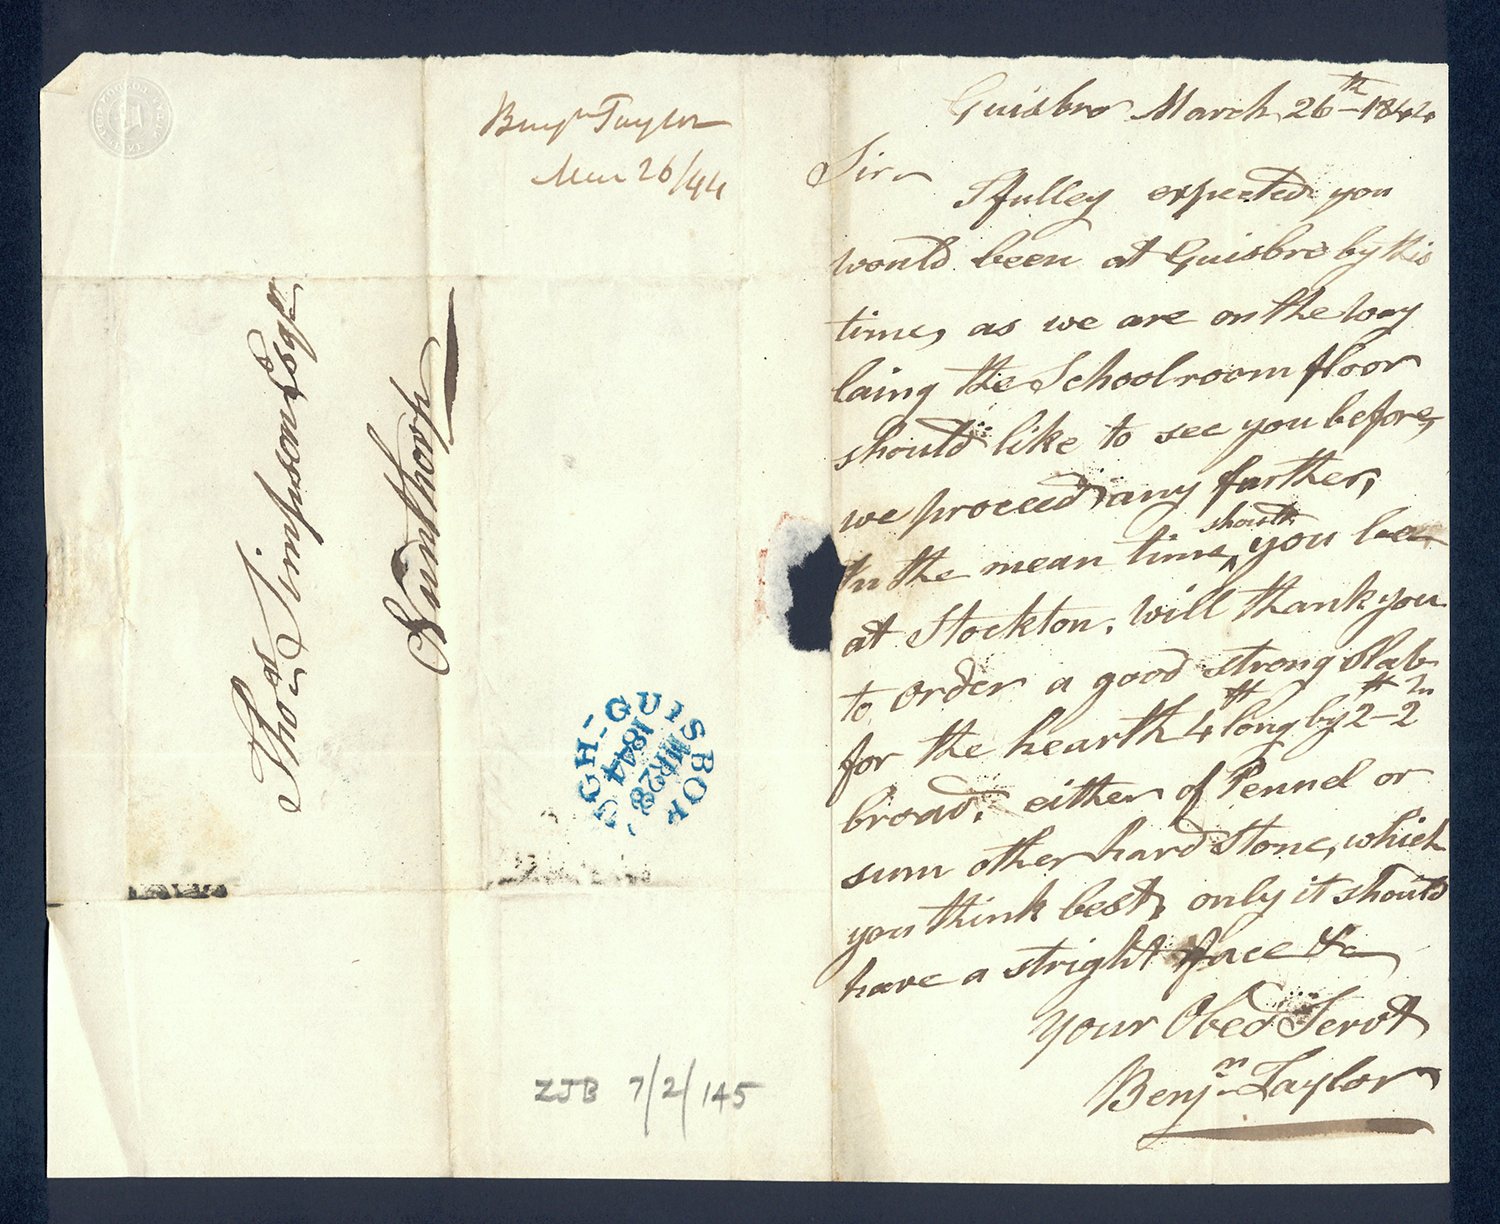 Benjn Taylor
Mar 26/44
Thos Simpson Esqr
Nunthorp
GUISBOROUGH
MR 28
1844
ZJB 7/2/145
Guisbro March 26th 1844
Sir
I fulley expected you
would been at Guisbro by this
time, as we are on the way
laing the Schoolroom floor
should like to see you before,
we proceed any further,
In the mean time, should you be
at Stockton, will thank you
to order a good strong Slab
for the hearth 4 ft long by 2 ft - 2 In
broad, either of Pennel or
sum other hard Stone, which
you think best, only it should
have a stright face &c
Your Obed Servt
Benjn Taylor